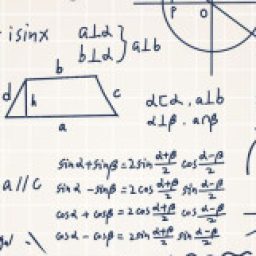 P O
isinx
a⊥α
b⊥α } a⊥b
b
d h c
a
α⊂α, a⊥b
α⊥β. a∩β
a//c
sinα+sinβ=2sin (α+β)/2 cos (α-β)/2
sinα-sinβ=2cos (α+β)/2 sin (α-β)/2
cosα+cosβ=2cos (α+β)/2 cos (α-β)/2
cosα-cosβ=2sin (α+β)/2 sin (α-β)/2